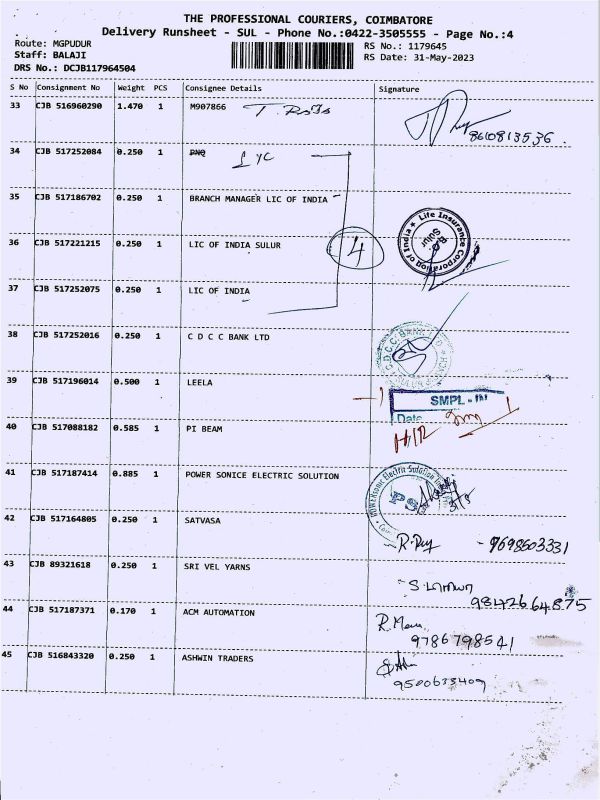 THE PROFESSIONAL COURIERS, COIMBATORE
Delivery Runsheet - SUL - Phone No.:0422-3505555 - Page No.:4
Route: MGPUDUR
RS No.: 1179645
Staff: BALAJI
RS Date: 31-May-2023
DRS No.: DCJB117964504
S No Consignment No Weight PCS Consignee Details Signature
33 CJB 516960290 1.470 1 M907866
8610813536
34 CJB 517252084 0.250 1 PNQ
35 CJB 517186702 0.250 1 BRANCH MANAGER LIC OF INDIA
36 CJB 517221215 0.250 1 LIC OF INDIA SULUR 4
Life Insurance Corporation of India
B.O. Sulur
37 CJB 517252075 0.250 1 LIC OF INDIA
38 CJB 517252016 0.250 1 C D C C BANK LTD
C.D.C.C. BANK LTD
39 CJB 517196014 0.500 1 LEELA
SMPL - IN
Date
40 CJB 517088182 0.585 1 PI BEAM
41 CJB 517187414 0.885 1 POWER SONICE ELECTRIC SOLUTION
Electric Solution
PS
42 CJB 517164805 0.250 1 SATVASA
9698603331
43 CJB 89321618 0.250 1 SRI VEL YARNS
9842664875
44 CJB 517187371 0.170 1 ACM AUTOMATION
9786798541
45 CJB 516843320 0.250 1 ASHWIN TRADERS
9500633409